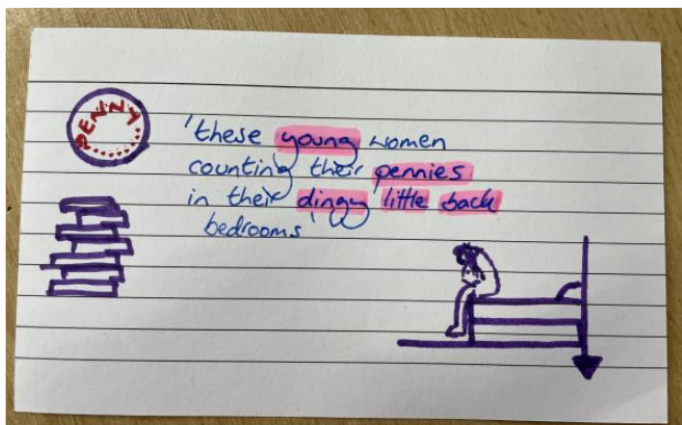 PENNY
'these young women
counting their pennies
in their dingy little back
bedrooms'